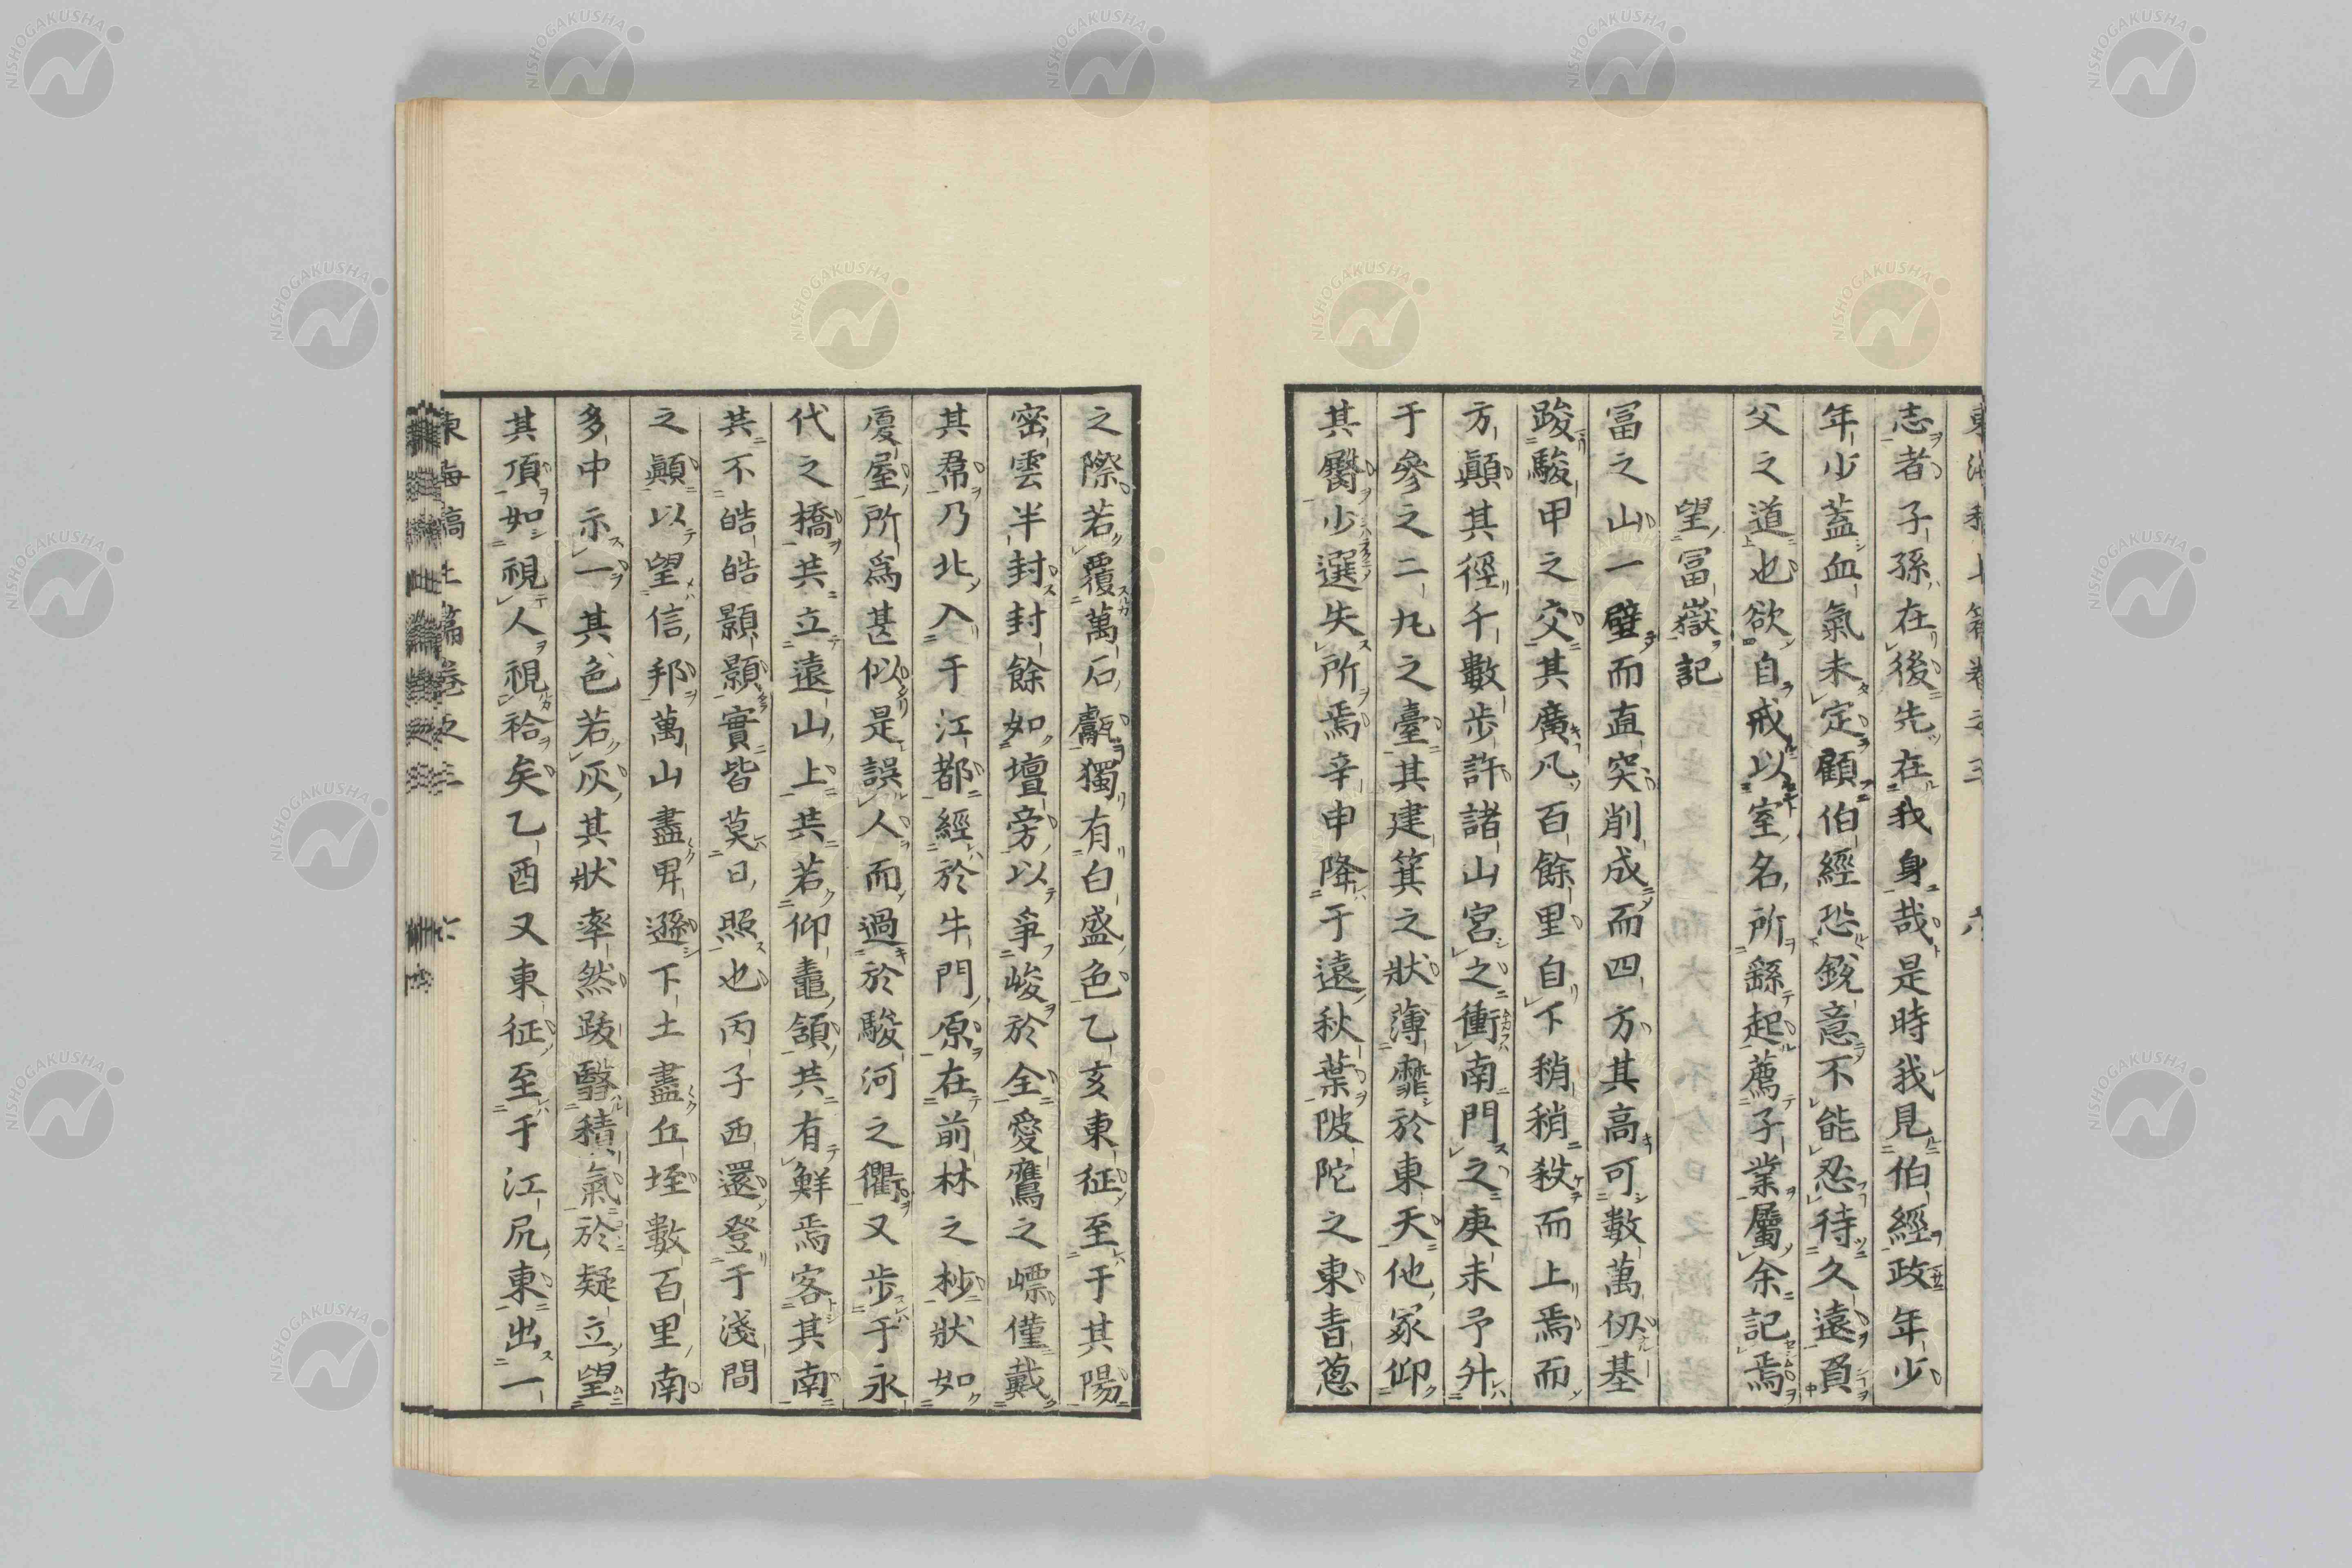 志者子孫在後先在我身哉是時我見伯經政年少
年少蓋血氣未定顧伯經恐銳意不能忍待久遠負
父之道也欲自戒以室名所繇起薦子業屬余記焉
望冨嶽記
冨之山一壁而直突削成而四方其高可數萬仞基
跨駿甲之交其廣凡百餘里自下稍稍殺而上焉而
方顚其徑千數步許諸山宮之衝南門之庚未予升
于參之二九之臺其建箕之狀薄靡於東天他冢仰
其少選失所焉辛申降于遠秋葉陂陀之東青蔥
之際若覆萬石甗獨有白盛色乙亥東征至于其陽
密雲半封封餘如壇旁以爭峻於全愛鷹之嶂僅戴
其帬乃北入于江都經於牛門原在前林之杪狀如
廈屋所爲甚似是誤人而過於駿河之衢又步于永
代之橋共立遠山上共若仰鼇頟共有鮮焉客其南
共不皓皓顥顥實皆莫日照也丙子西還登于淺間
之顚以望信邦萬山盡卑遜下土盡丘垤數百里南
多中示一其色若灰其狀率然跋翳積氣於疑立望
其頂如視人視袷矣乙酉又東征至于江尻東出一
東海稿上篇卷之三 六
NISHOGAKUSHA